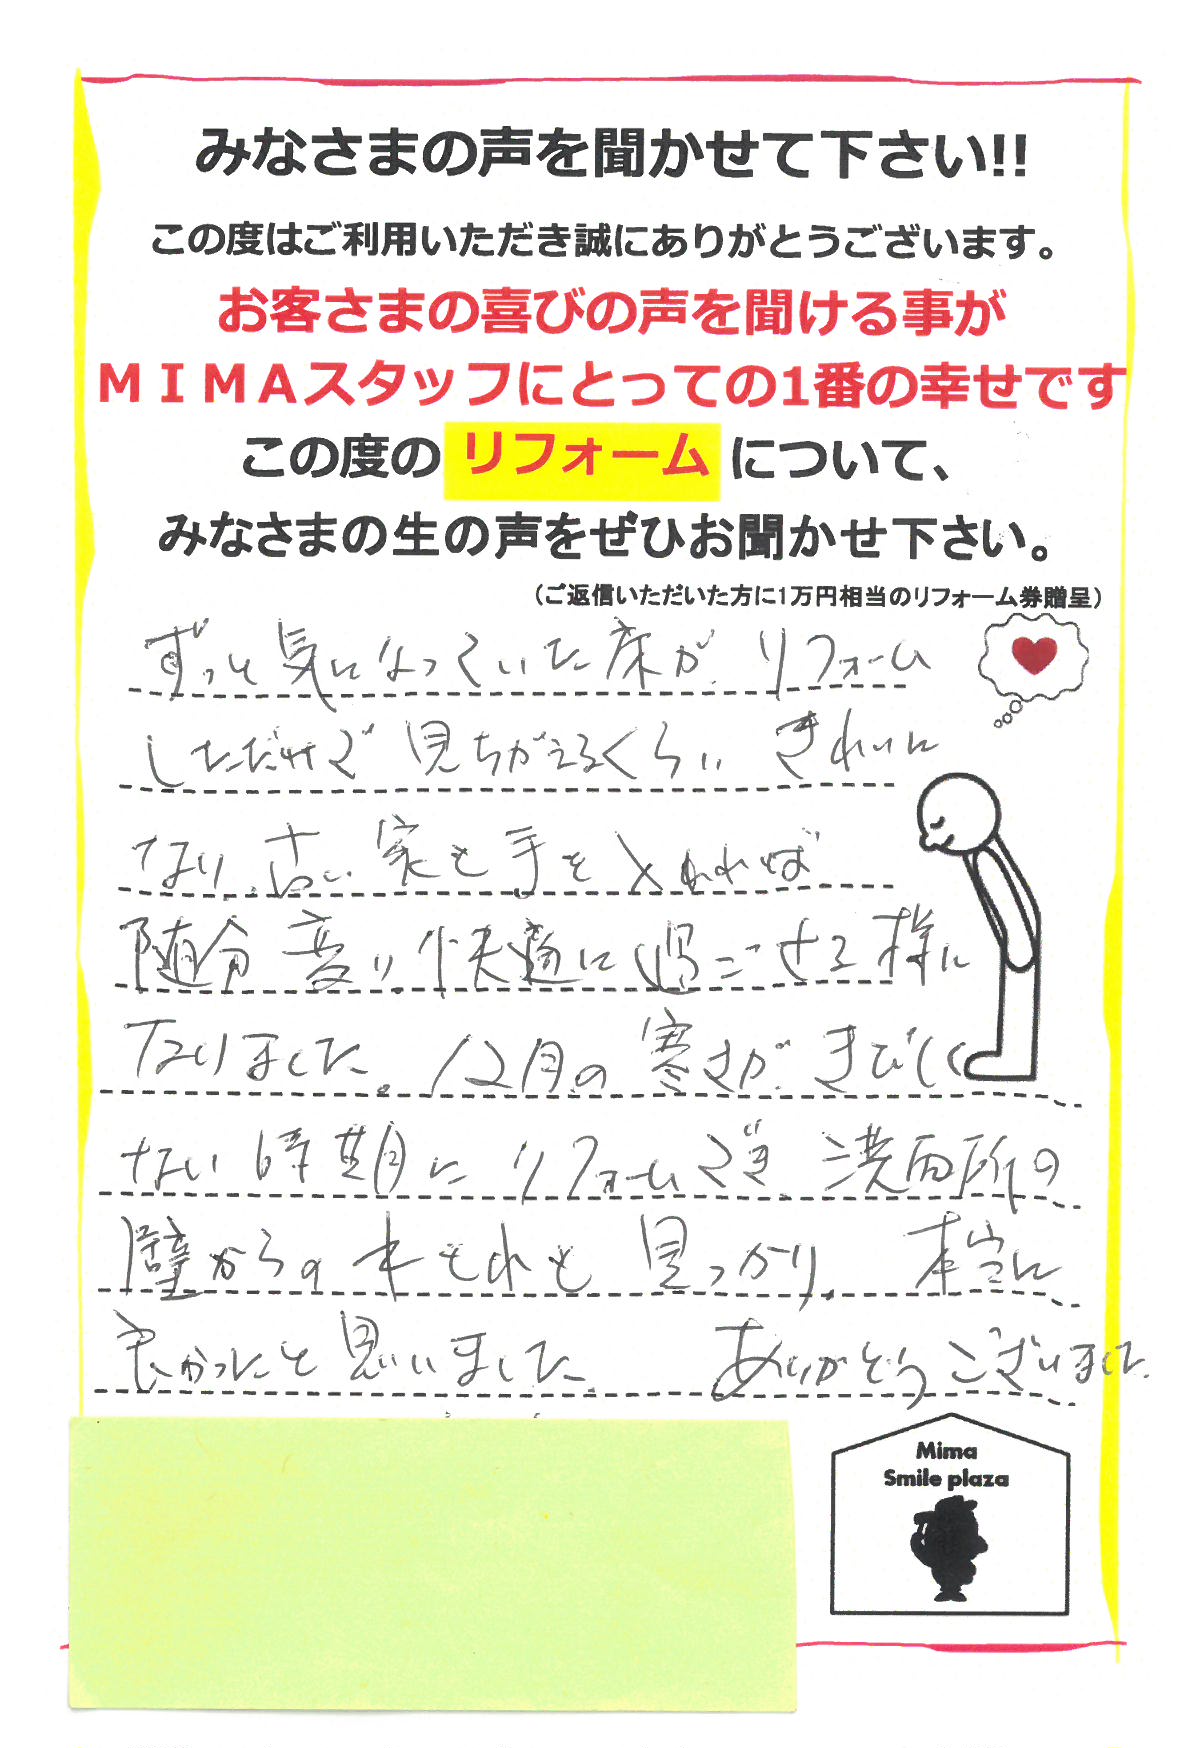 みなさまの声を聞かせて下さい!!
この度はご利用いただき誠にありがとうございます。
お客さまの喜びの声を聞ける事が
ＭＩＭＡスタッフにとっての1番の幸せです
この度の リフォーム について、
みなさまの生の声をぜひお聞かせ下さい。
（ご返信いただいた方に1万円相当のリフォーム券贈呈）
ずっと気になっていた床が、リフォーム
しただけで 見ちがえるくらい きれいに
なり、古い家も手を 入れれば
随分変り、快適に過ごせる様に
なりました。12月の寒さが、きびしく
ない時期に リフォームでき、洗面所の
壁からの水もれも 見つかり、本当に
良かったと思いました。 ありがとうございました。
Mima
Smile plaza